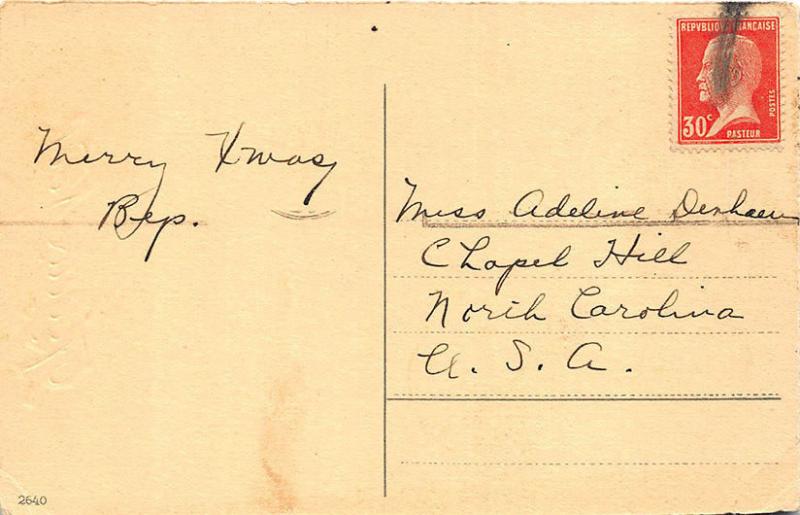 REPVBLIQVE FRANÇAISE
30c
PASTEUR
POSTES
Merry Xmas
Bep.
Miss Adeline Denham
Chapel Hill
North Carolina
U. S. A.
2640